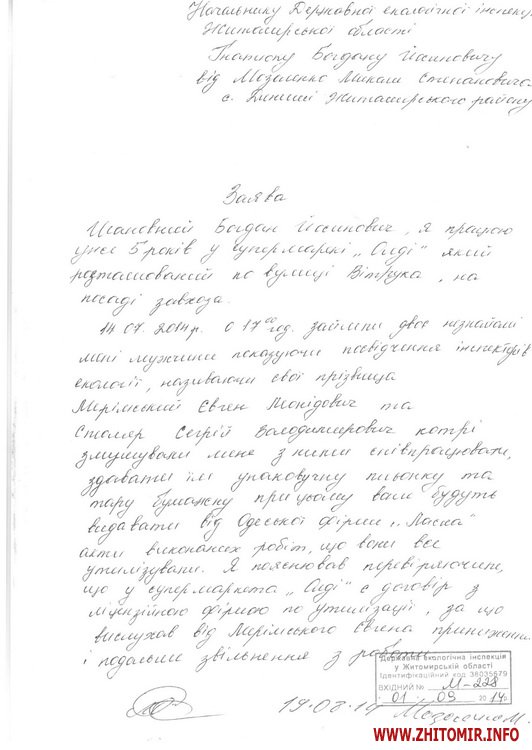 Начальнику Державної екологічної інспекц
Житомирської області
Гнатюку Богдану Йосиповичу
від Мозоленко Миколи Степановича
с. Житомирського району
Заява
Шановний Богдан Йосипович, я працюю
уже 5 років у супермаркі „Сиді" який
розташований по вулиці Вітрука, на
посаді завхоза.
14 07. 2014р. о 17 00 год. зайшли двоє незнайомі
мені мужчини показуючи посвідчення інспекторів
екології, називаючи свої прізвища
Мерімський Євген Леонідович та
Столяр Сергій Володимирович котрі
змушували мене з ними співпрацювати,
здавати їм упаковучну пльонку та
тару бумажну при цьому вони будуть
видавати від Одеської фірми „Ласка"
акти виконаних робіт, що вони все
утилізували. Я пояснював перевіряючим,
що у супермаркета „Сиді" є договір з
ліцензійною фірмою по утилізації, за що
вислухав від Мерімського Євгена приниження
і подальши звільнення з роботи
Державна екологічна інспекція
у Житомирській області
Ідентифікаційний код 38035679
ВХІДНИЙ № М-228
01 09 2014р.
19.08.14 М.
WWW.ZHITOMIR.INFO